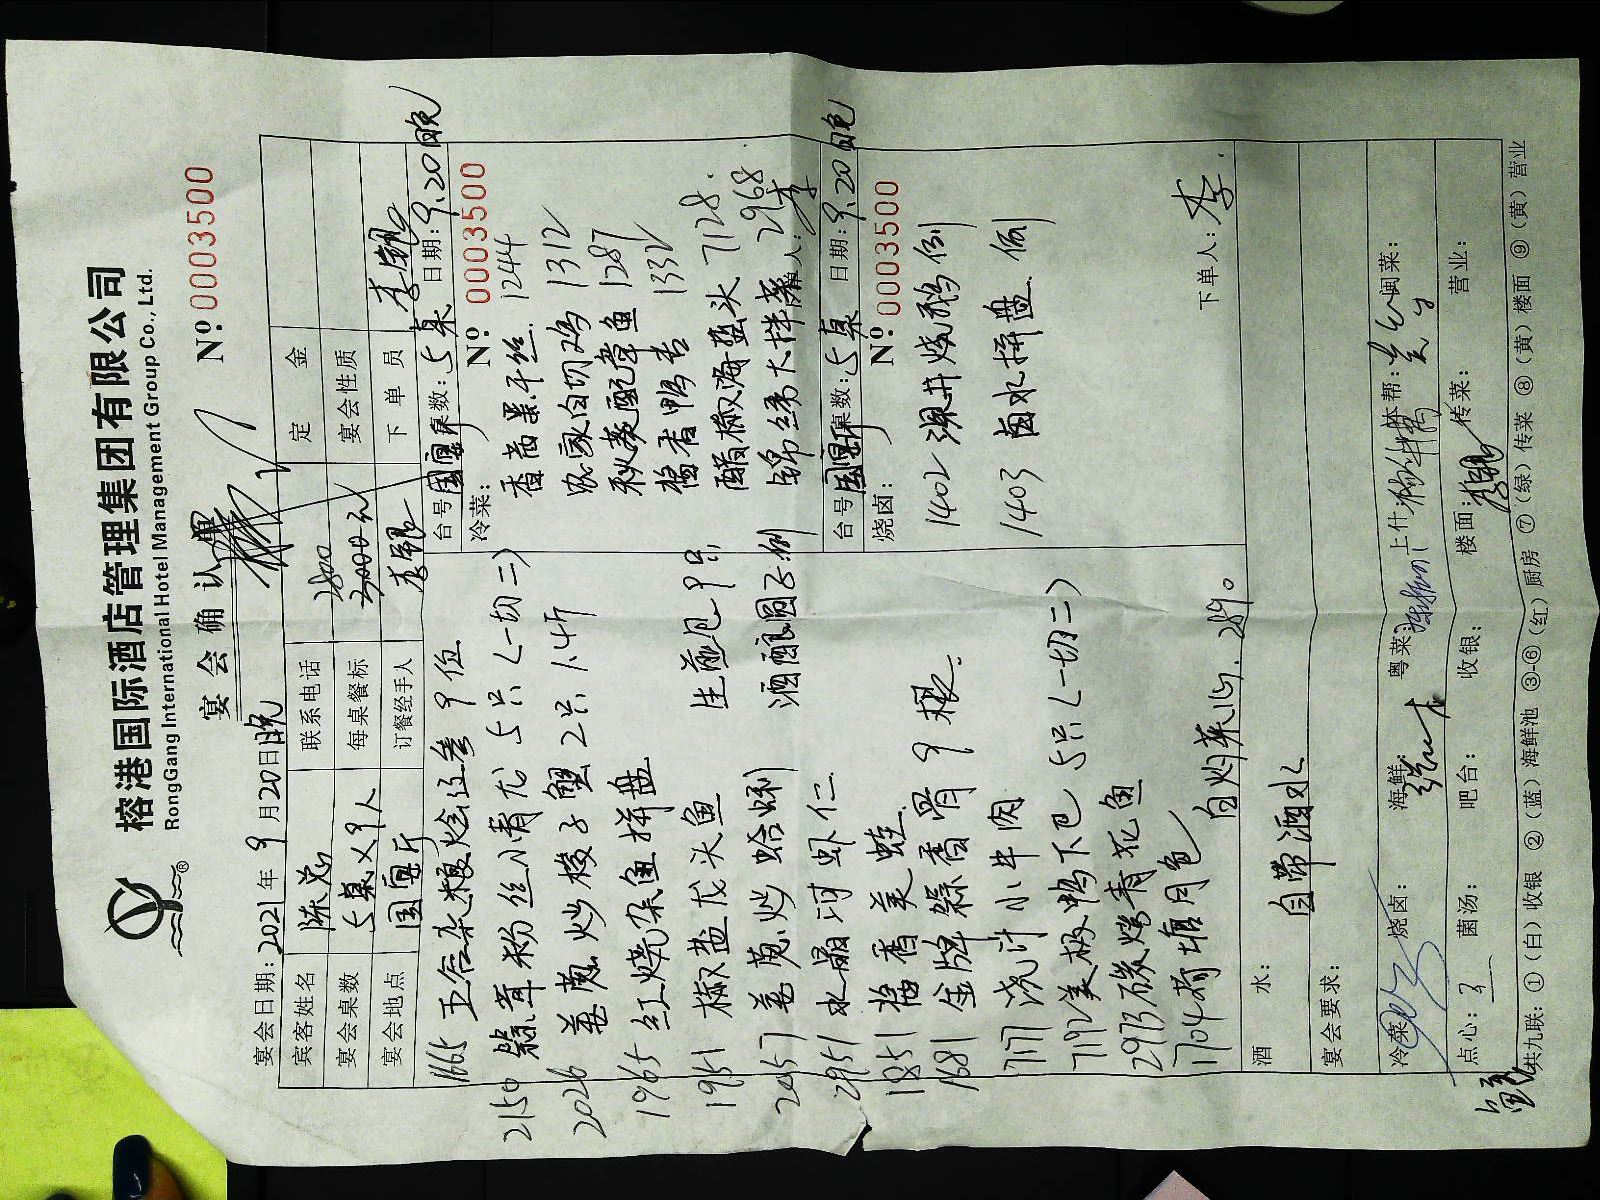 榕港国际酒店管理集团有限公司
RongGang International Hotel Management Group Co., Ltd.
宴会确认单
Nº:0003500
宴会日期:2021年9月20日晚
宾客姓名 陈总 联系电话 定金
宴会桌数 5桌×9人 每桌餐标 2800 宴会性质
宴会地点 国宴厅 订餐经手人 李银 下单员 李银
1665 五谷杂粮烩辽参 9位
2150 蒜茸粉丝小青龙 5只(一切二)
2026 姜葱炒梭子蟹 2只 1.4斤
1965 红烧杂鱼拼盘
1951 椒盐龙头鱼 生煎包 9只
2057 姜葱炒蛤蜊 酒酿圆子:例
2951 水晶河虾仁
1851 酱香美蛙
1681 金牌蒜香骨 9根.
7177 浇汁小牛肉
7192 美极鸭下巴 5只(一切二)
2973 碳烤青花鱼
1704 荷塘月色
白灼菜心. 2890
台号 国宴厅 桌数:5桌 日期:9.20晚
冷菜: Nº 0003500
香茜黑干丝 1244
农家白切鸡 1312
秋葵配章鱼 1287
酱香鸭舌 1332
醋椒海蜇头 7128.
锦绣大拌菜 2968
下单人:李
台号 国宴厅 桌数:5桌 日期:9.20晚
烧卤: Nº 0003500
1402 深井烧鹅 例
1403 卤水拼盘 例
下单人:李.
酒水: 自带酒水
宴会要求:
冷菜: 烧卤: 海鲜: 粤菜: 上什: 本帮: 闽菜:
点心: 菌汤: 吧台: 收银: 楼面: 传菜: 营业:
共九联: ①(白)收银 ②(蓝)海鲜池 ③-⑥(红)厨房 ⑦(绿)传菜 ⑧(黄)楼面 ⑨(黄)营业